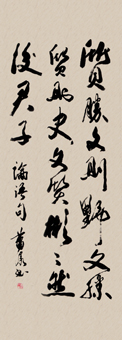 質勝文則野文勝
質則史文質彬〻然
後君子 論語句